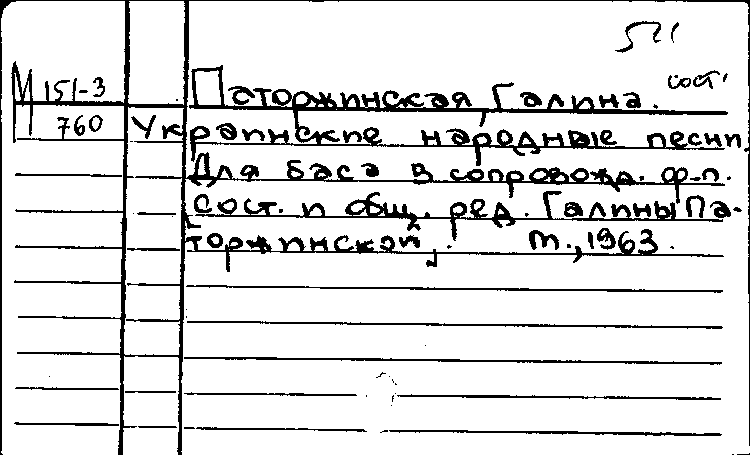 М 151-3 Паторжинская, Галина. сост.
760 Украинские народные песни.
Для баса в сопровожд. ф-п.
Сост. и общ. ред. Галины Па-
торжинской. М., 1963.